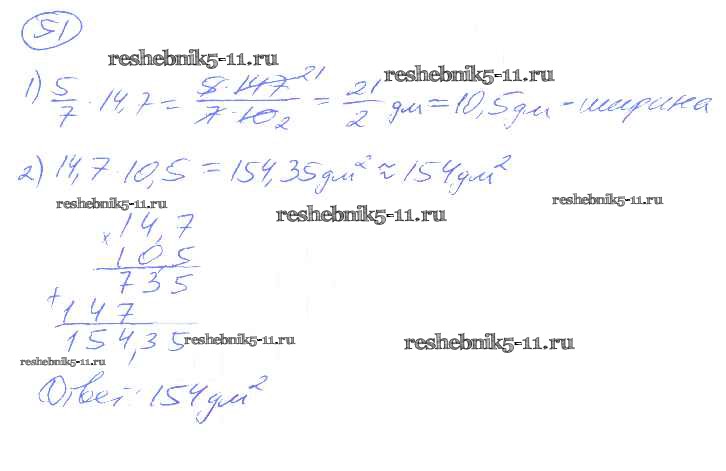 51
reshebnik5-11.ru
reshebnik5-11.ru
1) 5/7 · 14,7 = 5·147 21 / 7·10 2 = 21/2 дм = 10,5 дм - ширина
2) 14,7 · 10,5 = 154,35 дм² ≈ 154 дм²
reshebnik5-11.ru
reshebnik5-11.ru
reshebnik5-11.ru
× 14,7
10,5
735
+ 147
154,35
reshebnik5-11.ru
reshebnik5-11.ru
reshebnik5-11.ru
Ответ: 154 дм²